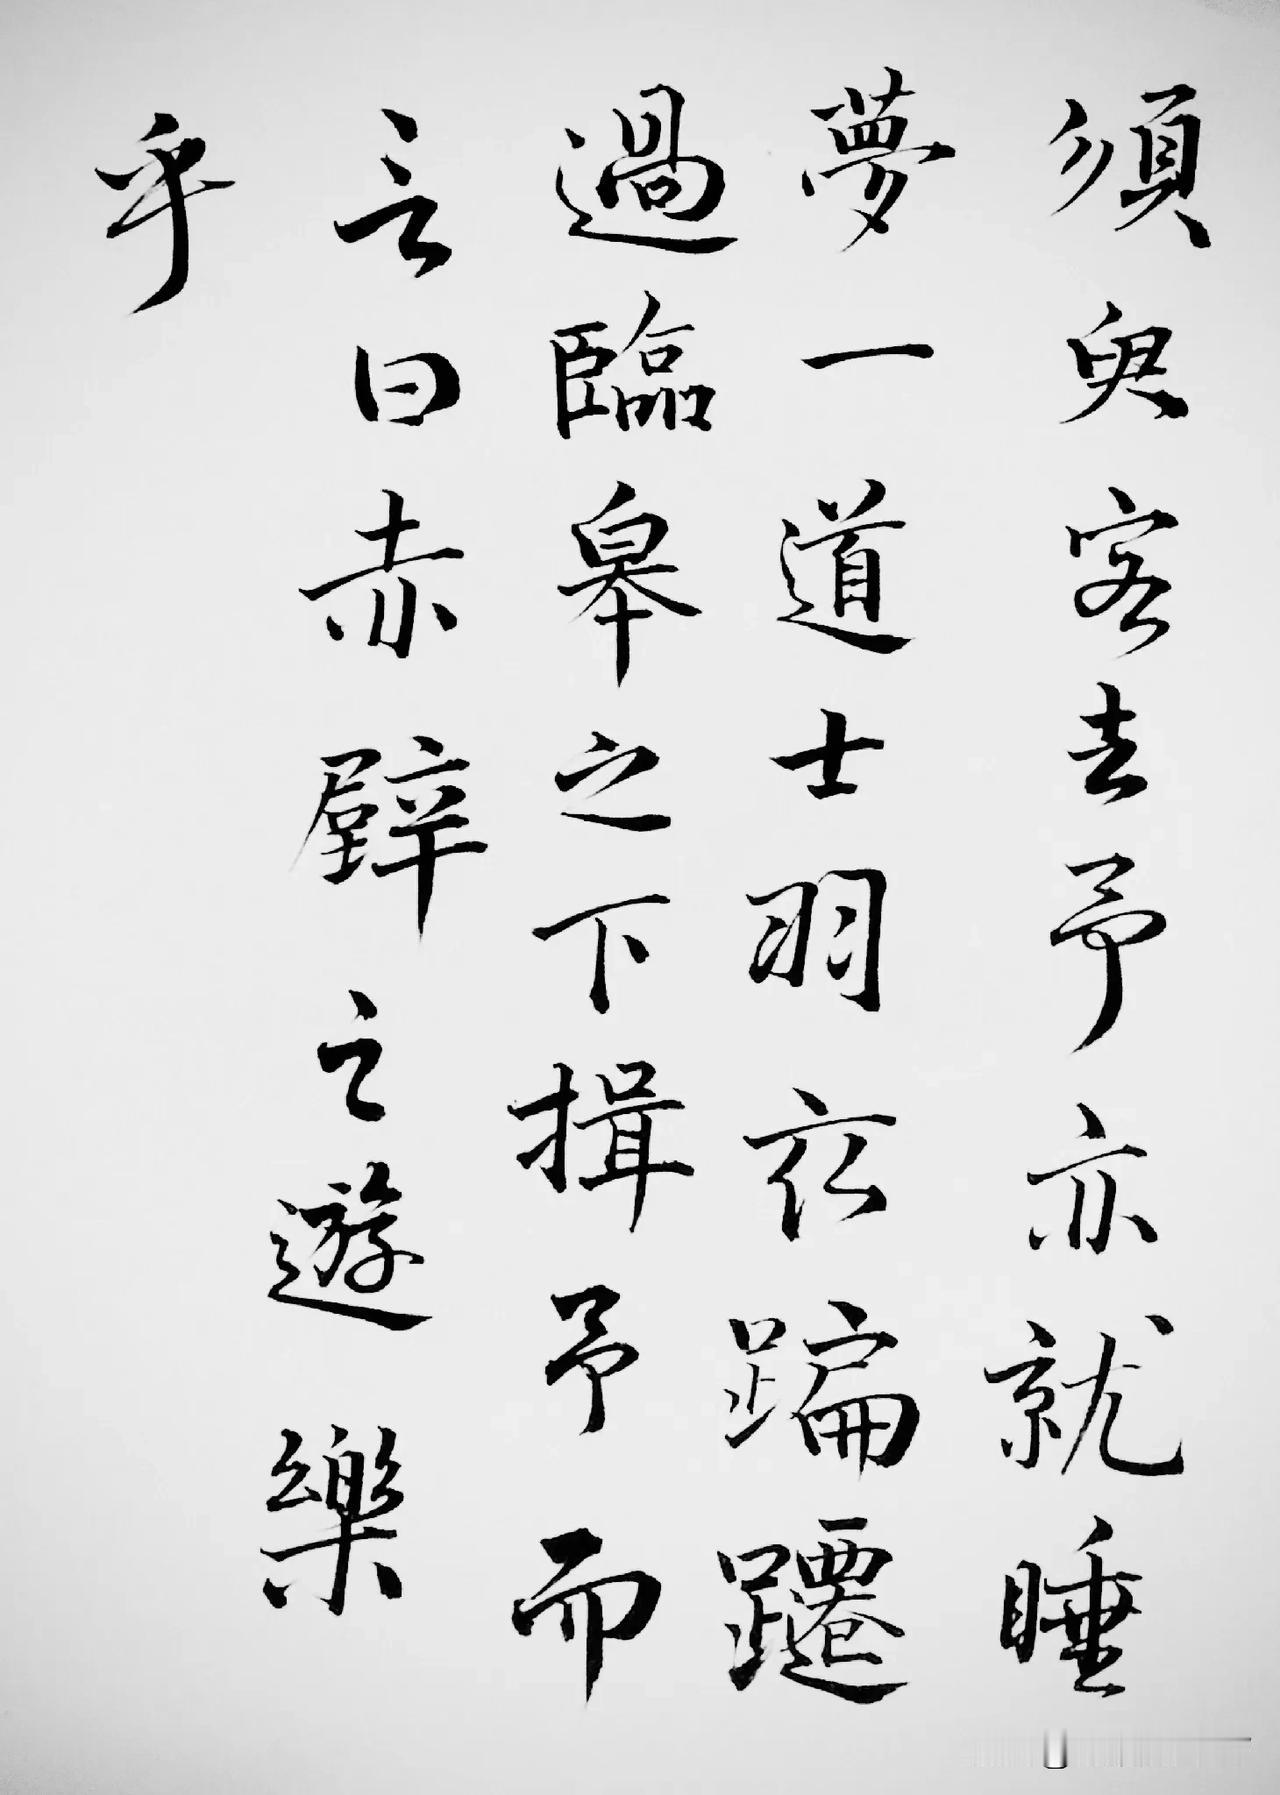 須臾客去予亦就睡
夢一道士羽衣蹁躚
過臨皋之下揖予而
言曰赤壁之遊樂
乎